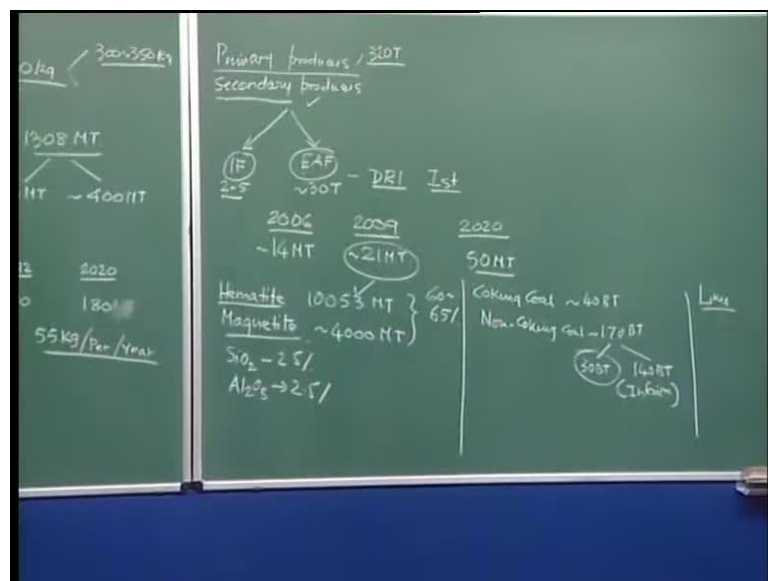 0kg
300~350kg
1308 MT
MT ~400MT
2020
0 180
55 kg/Per/Year
Primary producers, 320T
Secondary producers ✓
IF EAF
2-5 ~30T - DRI Ist
2006 2009 2020
~14MT ~21MT 50MT
Hematite 10053 MT } 60~
Magnetite ~4000MT } 65%
SiO2 - 2.5%
Al2O3 → 2.5%
Coking Coal ~40BT
Non-Coking Coal ~170BT
30BT 140BT